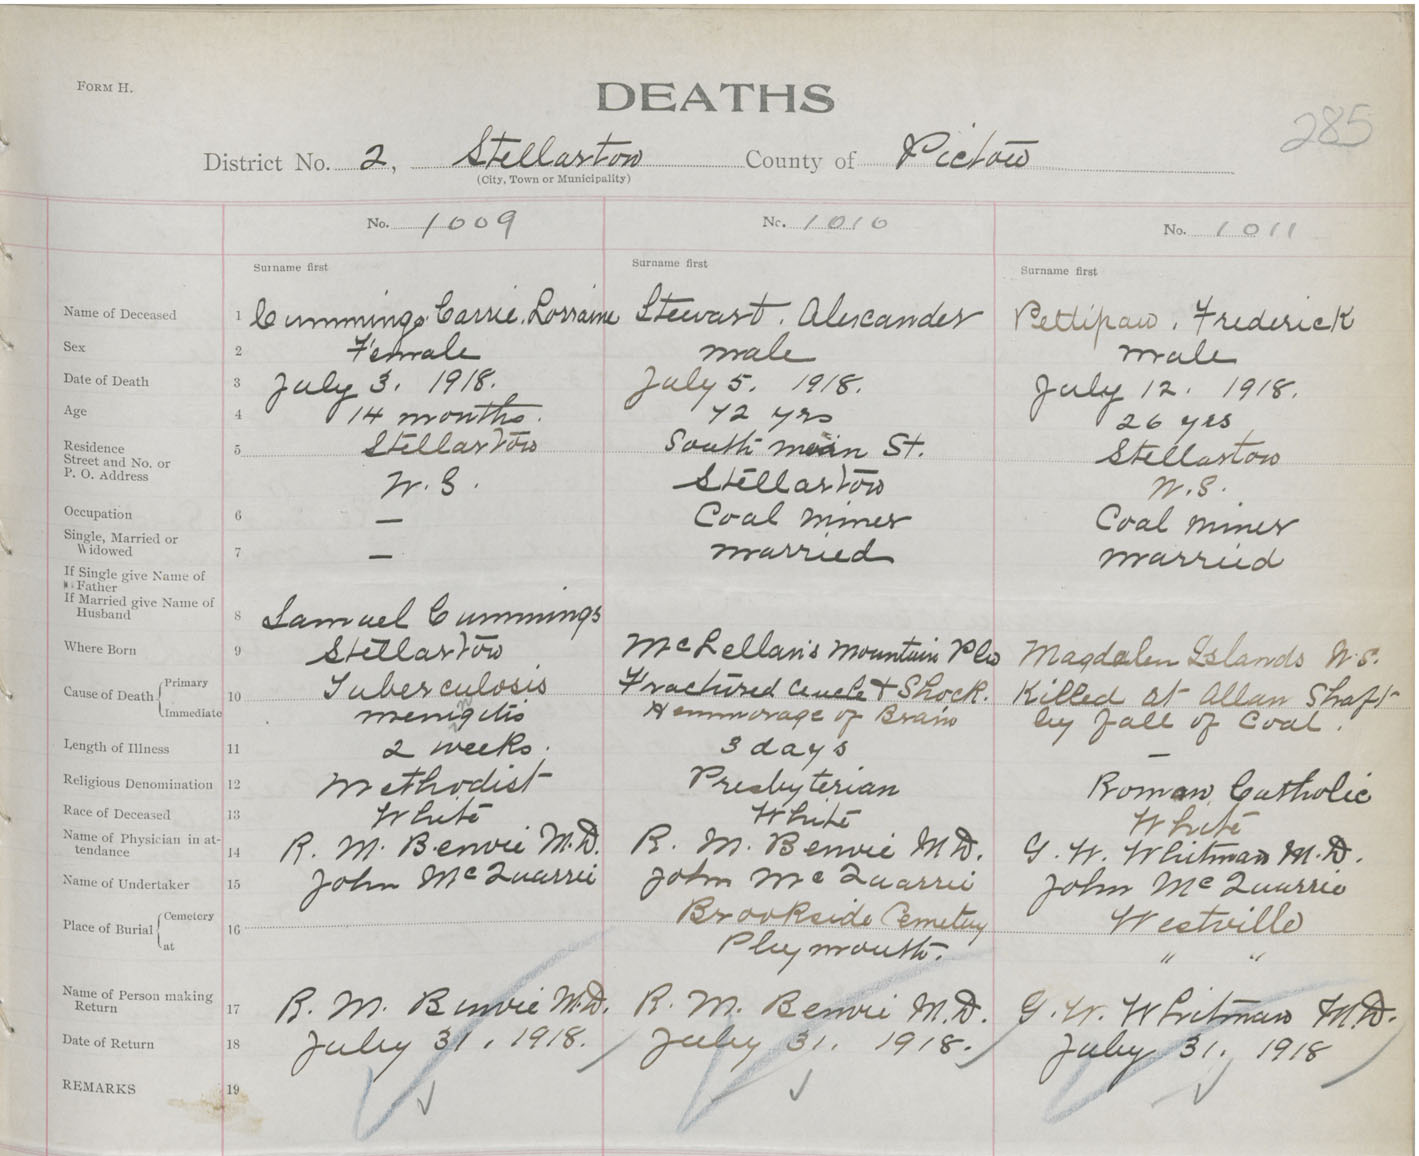 FORM H.
DEATHS
285
District No. 2, Stellarton County of Pictou
(City, Town or Municipality)
No. 1009 No. 1010 No. 1011
Surname first Surname first Surname first
Name of Deceased 1 Cummings, Carrie, Lorraine Stewart, Alexander Pettipaw, Frederick
Sex 2 Female male male
Date of Death 3 July 3. 1918. July 5. 1918. July 12. 1918.
Age 4 14 months. 72 yrs 26 yrs
Residence 5 Stellarton South main St. Stellarton
Street and No. or
P. O. Address N.S. Stellarton N.S.
Occupation 6 — Coal miner Coal miner
Single, Married or
Widowed 7 — married married
If Single give Name of
Father
If Married give Name of
Husband 8 Samuel Cummings
Where Born 9 Stellarton McLellan's Mountain Magdalen Islands N.S.
Cause of Death Primary 10 Tuberculosis Fractured & Shock. Killed at Allan Shaft
Immediate menigitis Hemmorage of Brain by fall of Coal.
Length of Illness 11 2 weeks. 3 days —
Religious Denomination 12 Methodist Presbyterian Roman Catholic
Race of Deceased 13 White White White
Name of Physician in at-
tendance 14 R. M. Benvie M.D. R. M. Benvie M.D. G. W. Whitman M.D.
Name of Undertaker 15 John McQuarrie John McQuarrie John McQuarrie
Place of Burial Cemetery 16 Brookside Cemetery Westville
at Plymouth. " "
Name of Person making
Return 17 R. M. Benvie M.D. R. M. Benvie M.D. G. W. Whitman M.D.
Date of Return 18 July 31. 1918. July 31. 1918. July 31. 1918
REMARKS 19